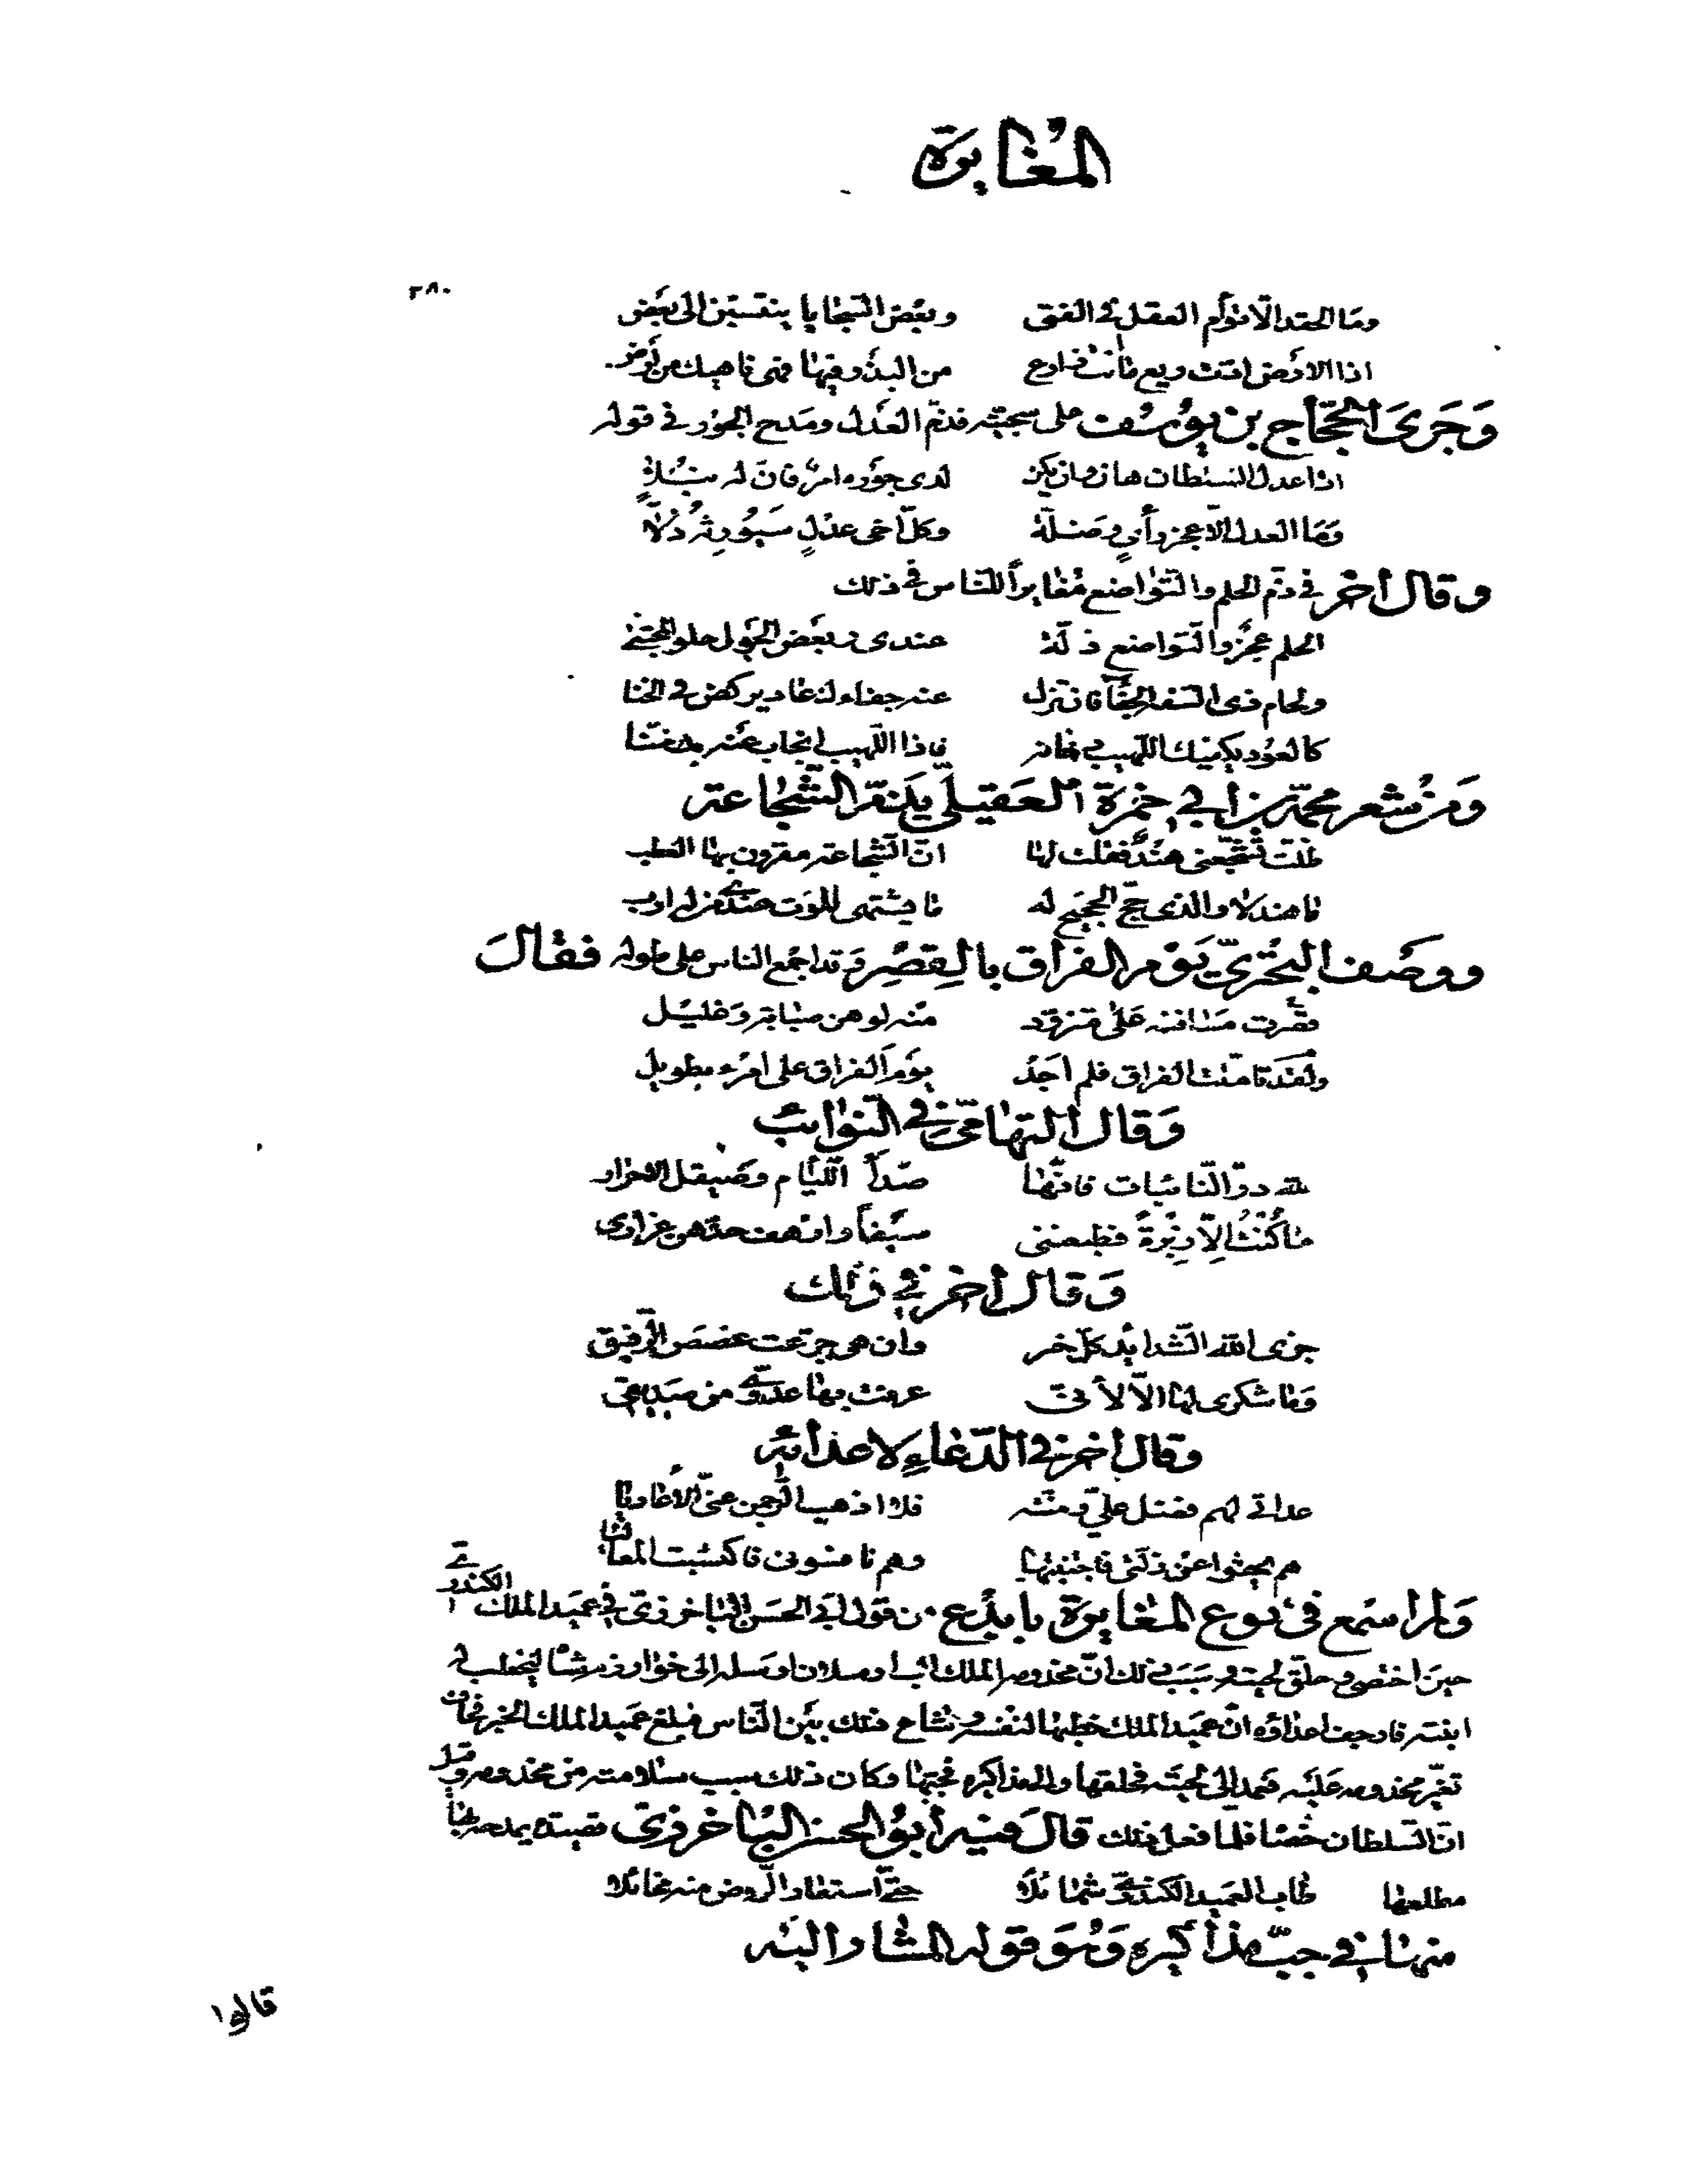 المُغايرة
٢٨٠
وما الحقد الا توأم العقل في الفتى وبعض السجايا ينتسبن الى بعض
اذا الارض ادت ريع ما انت زارع من البذر فيها فهى ناهيك من أرض
وَجَرىَ الحجّاج بن يوُسُف على سجيته فذمّ العدل ومَدح الجور في قوله
اذا عدل السلطان هان وان يكن لدى جوره امرٌ فانّ له
وَمَا العدل الّا عجز رأيٍ وضلّة وكلّ اخى عدْلٍ سَيُورِثُه ذُلّا
وقال أخر في ذمّ الحلم والتواضع مُغايراً للناس في ذلك
الحلم عجزٌ والتواضع ذلّة عندى وبعض الجهل حلو المجتنى
ولجام ذى السفه الجفا فان تزل عنه جفاءك عاد يركض في الخنا
كالعود يكفيك اللهيب دخانه فاذا اللهيب انجاب عنه دخنا
وَمن شعر محمّد بن أبي حمزة العَقيليّ يَذمّ الشّجاعة
ظلّت تشجّعنى هندٌ فقلت لها انّ الشجاعة مقرون بها العطب
يا هند لا والذى حجّ الحجيج له ما يشتهى الموت عندى من له ادب
ووصَف البُحتريّ يَوْم الفراق بالقِصَر وَقد اجمع الناس على طوله فقالَ
قصُرت مسافته على متزوّد منه لوهن صبابة وَغليل
ولَقد تأمّلت الفراق فلم اجد يوْم الفراق على امْرء بطويل
وَقال التهاميّ في النّوائب
لله درّ النائبات فانّها صَدأ اللّئام وصَيقل الاحرار
ما كُنْتُ الّا زُبْرةً فطبعننى سيْفاً واَرهف حدّهنّ غرارى
وَقال أخر في ذلك
جزى الله الشّدائد كلّ خير وان هى جرّعت غصصَى الرّيق
وَما شكرى لها الّا لأنّى عرفت بها عدوّى من صَديقى
وقال أخر في الدّعاء لاعدائه
عداتى لهم فضل عليّ ومنّه فلا اذهب الرّحمن عنّى الأعاديا
هم بحثوا عن زلّتى فاجتنبتها وهم نافسونى فاكتسبت المعاليا
وَلم اسْمع في نوع المغايرة بابدع من قول ابي الحسَن الباخرزيّ في عميَد الملك الكندرى
حين اختصى وحلق لحيته وَسَبب ذلك انّ مخدومه الملك الب ارسلان ارسله الى خوارزم شاه ليخطب له
ابنته فارجف اعداؤه انّ عميَد الملك خطبها لنفسه وشاع ذلك بين النّاس فبلغ عميَد الملك الخبر فخاف
تغيّر مخدومه عليه فعمد الى لحيته فحلقها والى مذاكيره فجبّها وكان ذلك سبب سلامته من مخدومه وقيل
انّ السلطان خصاه فلمّا فعل ذلك قالَ فيه أبوُ الحسن البَاخرزيّ قصيدة يمدحه بها
مطلعها طاب العميد الكندرىّ شمائلا حتّى استعار الروض منه مخائلا
منها في جبّ مذاكيره وَهُوَ قوله المشار اليه
قالوا